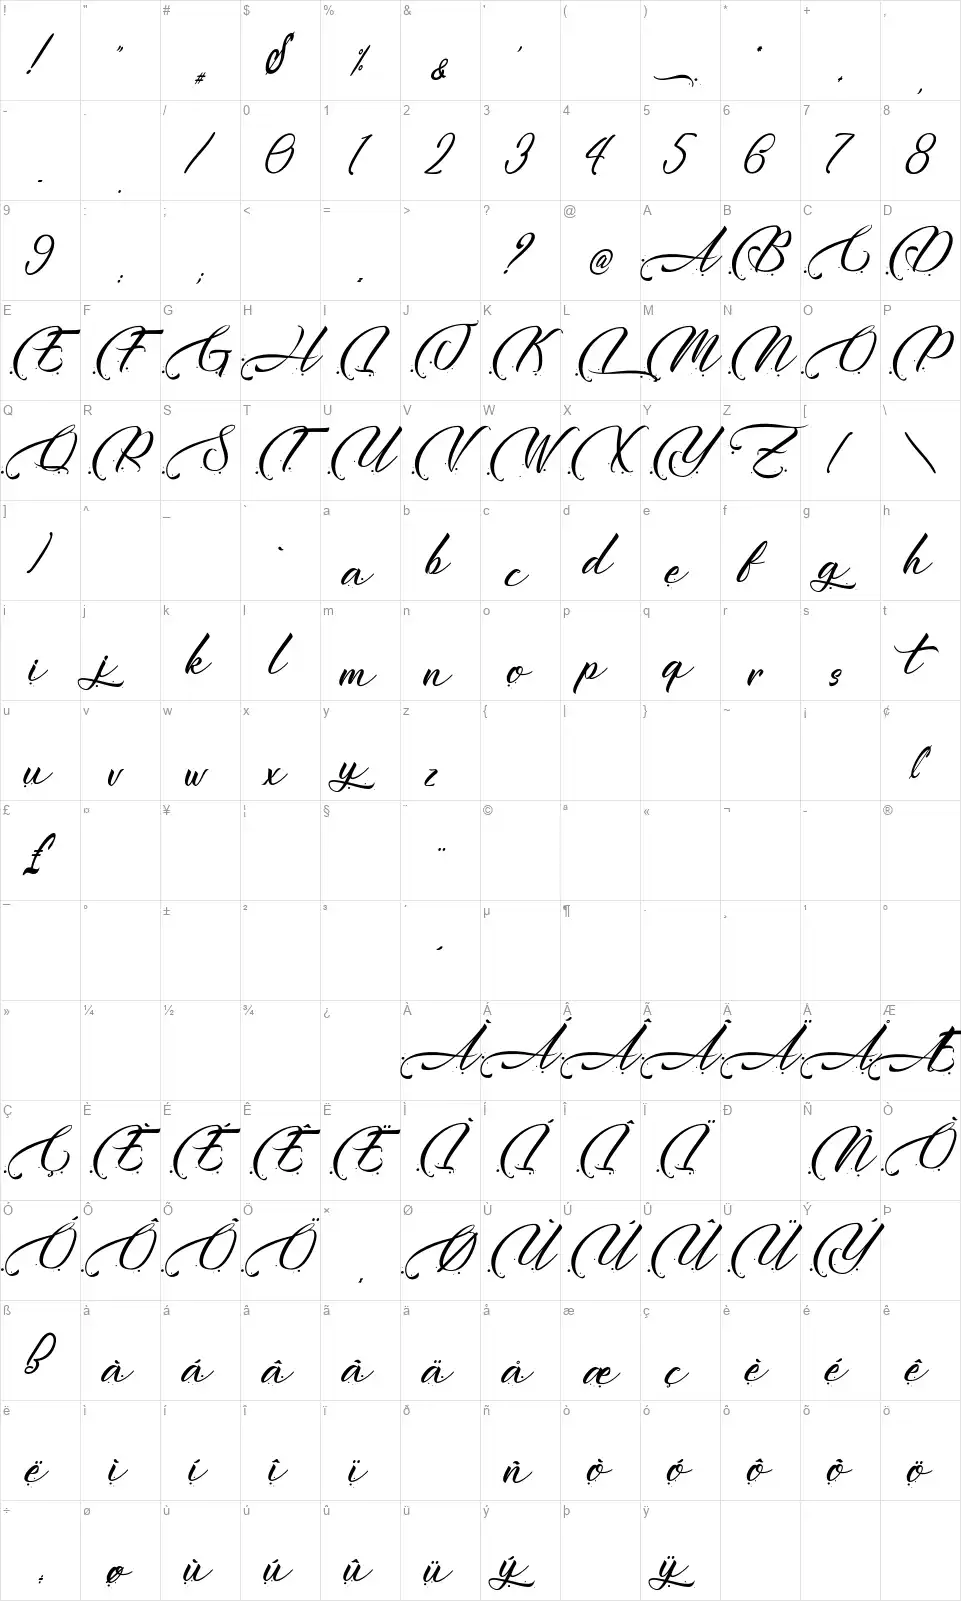 ! " # $ % & ' ( ) * + ,
! " # $ % & ' * + ,
- . / 0 1 2 3 4 5 6 7 8
- . / 0 1 2 3 4 5 6 7 8
9 : ; < = > ? @ A B C D
9 : ; ? @ A B C D
E F G H I J K L M N O P
E F G H I J K L M N O P
Q R S T U V W X Y Z [ \
Q R S T U V W X Y Z [ \
] ^ _ ` a b c d e f g h
] ` a b c d e f g h
i j k l m n o p q r s t
i j k l m n o p q r s t
u v w x y z { | } ~ ¡ ¢
u v w x y z ¢
£ ¤ ¥ ¦ § ¨ © ª « ¬ - ®
£ ¨
¯ ° ± ² ³ ´ µ ¶ · ¸ ¹ º
´
» ¼ ½ ¾ ¿ À Á Â Ã Ä Å Æ
À Á Â Ã Ä Å Æ
Ç È É Ê Ë Ì Í Î Ï Ð Ñ Ò
Ç È É Ê Ë Ì Í Î Ï Ñ Ò
Ó Ô Õ Ö × Ø Ù Ú Û Ü Ý Þ
Ó Ô Õ Ö Ø Ù Ú Û Ü Ý
ß à á â ã ä å æ ç è é ê
ß à á â ã ä å æ ç è é ê
ë ì í î ï ð ñ ò ó ô õ ö
ë ì í î ï ñ ò ó ô õ ö
÷ ø ù ú û ü ý þ ÿ
÷ ø ù ú û ü ý ÿ